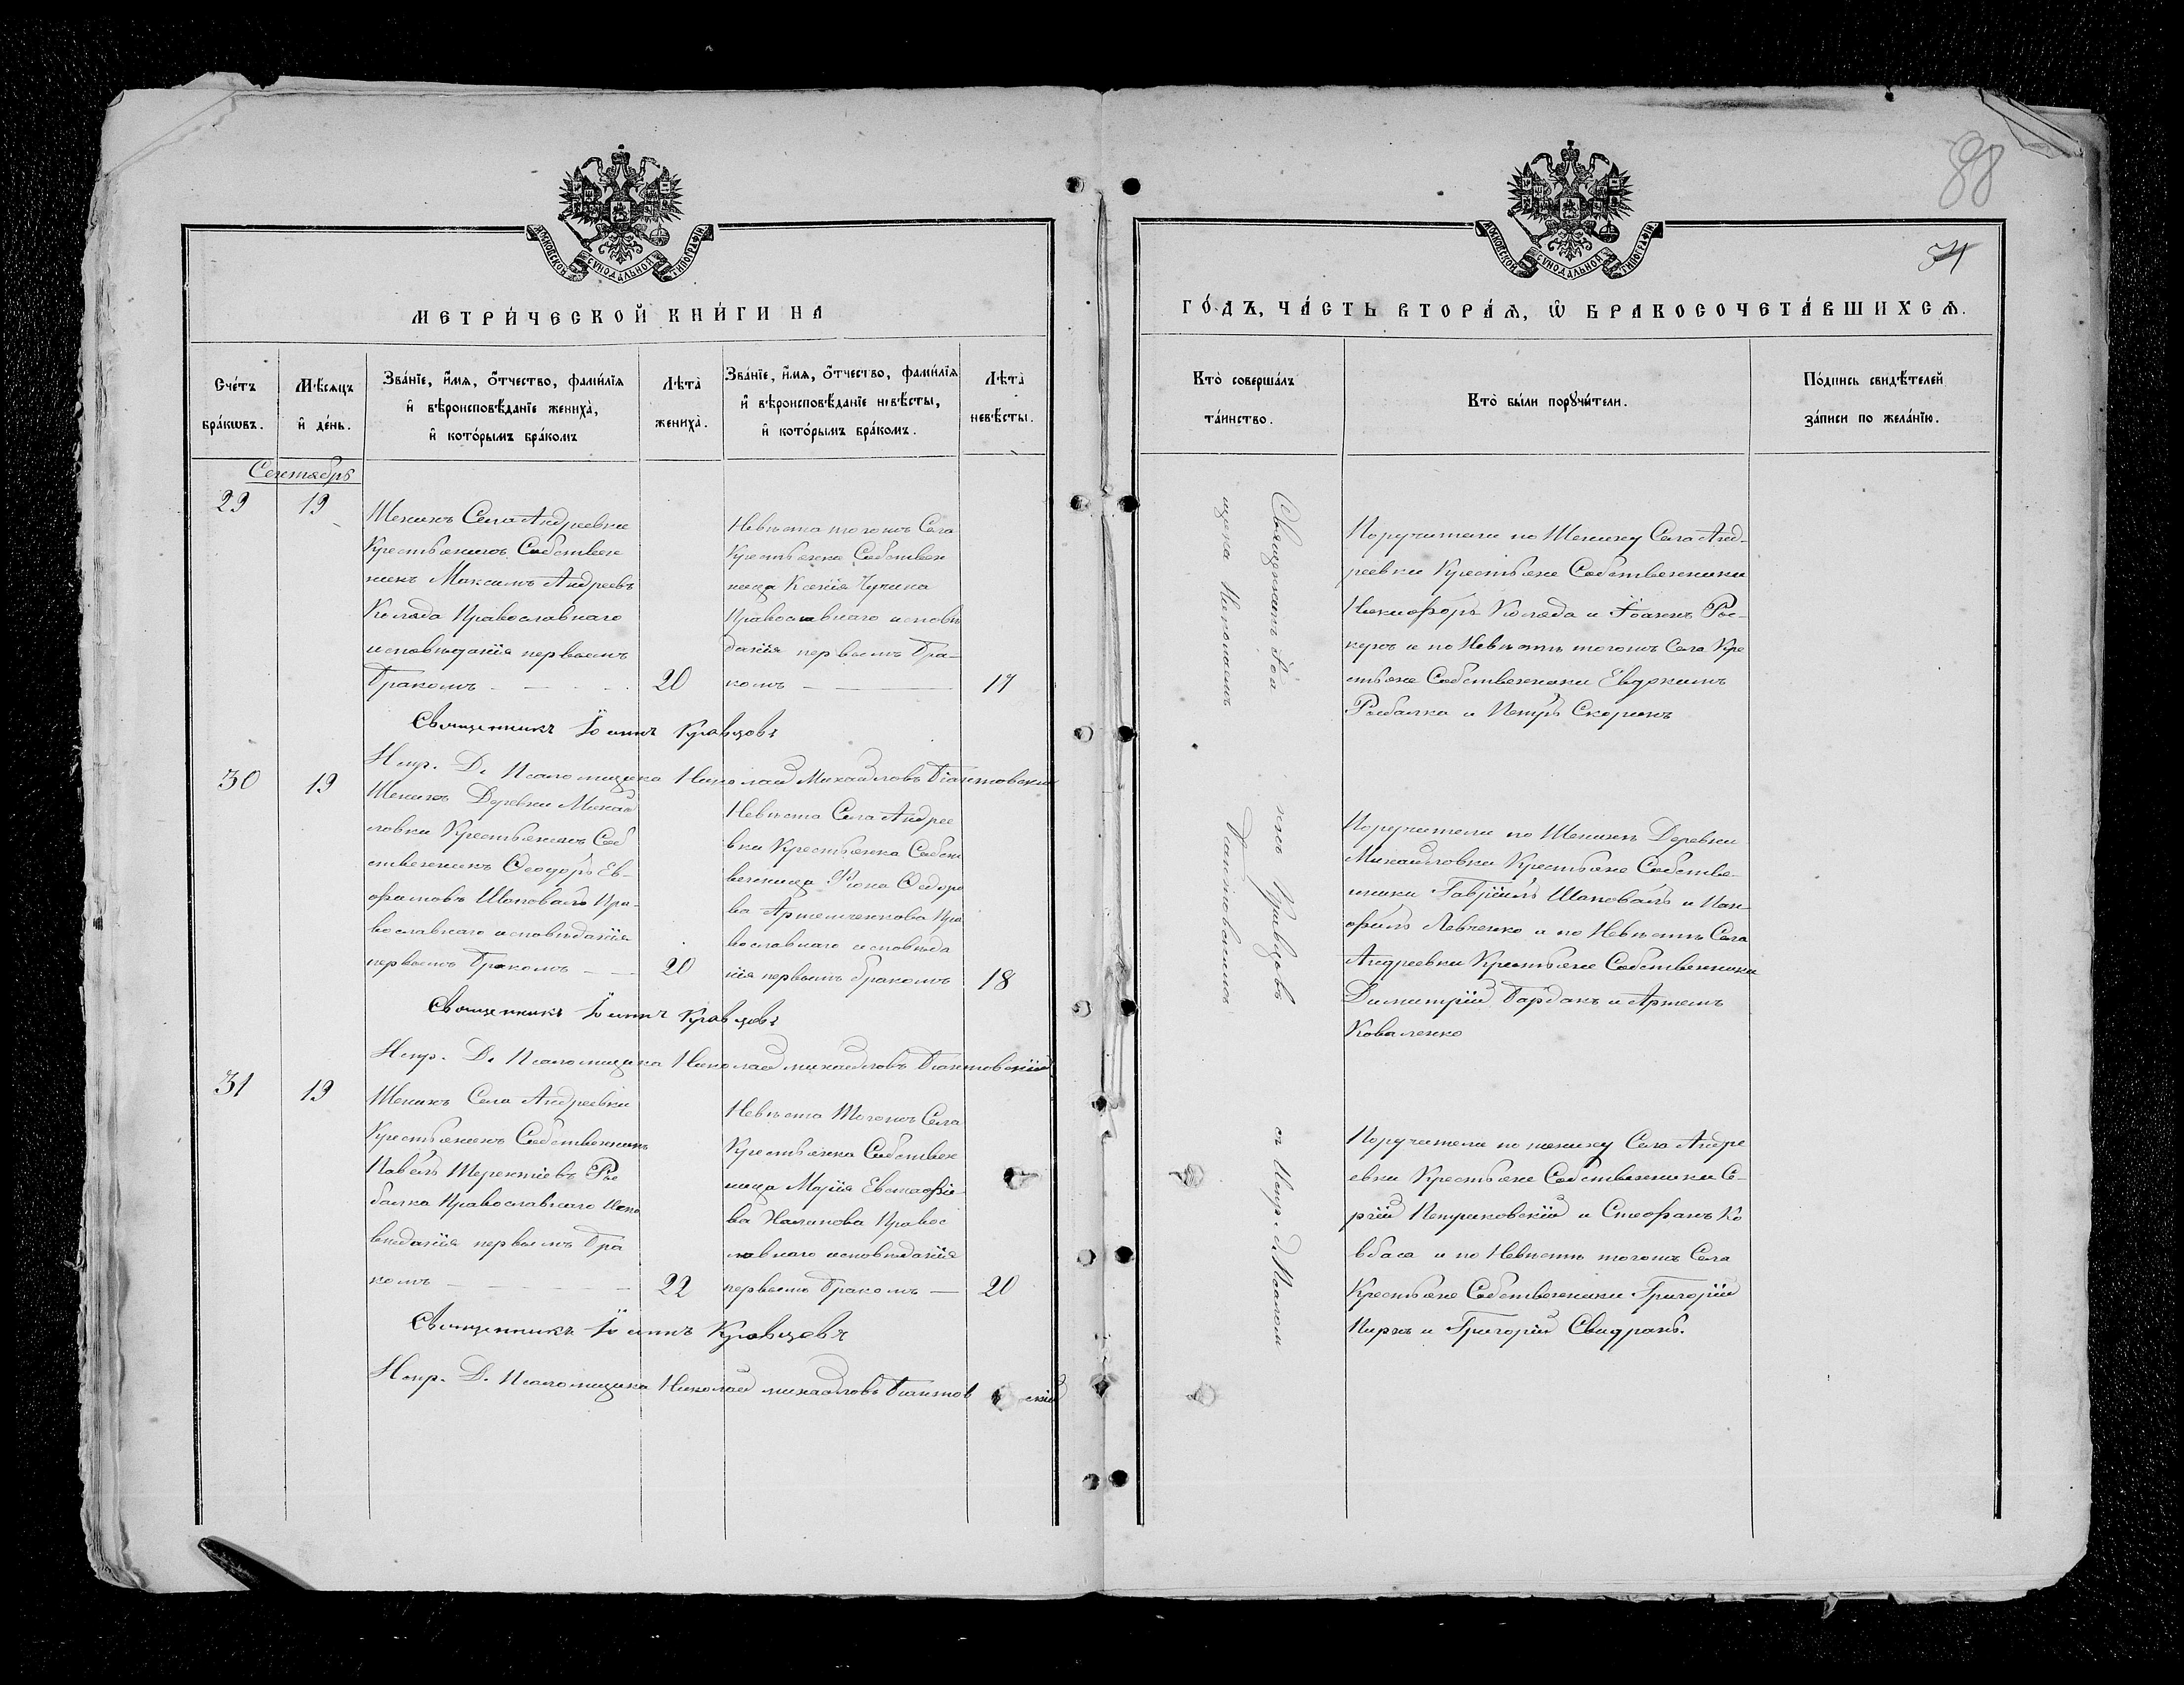 88
МОСКОВСКОЙ СУНОДАЛЬНОЙ ТИПОГРАФІИ
МЕТРИ́ЧЕСКОЙ КНИ́ГИ НА
Сче́тъ бра́кѡвъ.
Мѣ́сяцъ и҆ де́нь.
Зва́нїе, и҆́мя, ѻ҆́тчество, фами́лїя и҆ вѣроисповѣ́данїе жениха̀, и҆ кото́рымъ бра́комъ
Лѣта̀ жениха̀.
Зва́нїе, и҆́мя, ѻ҆́тчество, фами́лїя и҆ вѣроисповѣ́данїе невѣ́сты, и҆ кото́рымъ бра́комъ.
Лѣта̀ невѣ́сты.
Сентябрь
29
19
Женихъ Села Андреевки
Крестьянинъ Собствен
никъ Максимъ Андреевъ
Коляда Православнаго
исповѣданія первымъ
Бракомъ
20
Невѣста тогожъ Села
Крестьянка Собствен
ница Ксенія
Православнаго исповѣ
данія первымъ Бра-
комъ
17
Священникъ Іоаннъ Кравцовъ
Испр. Д. Псаломщика Николай Михайловъ
30
19
Женихъ Деревни Михай
ловки Крестьянинъ Соб
ственникъ Ѳеодоръ Ев-
Шаповалъ Пра-
вославнаго исповѣданія
первымъ Бракомъ
20
Невѣста Села Андрее
вки Крестьянка Собст
венница Ѳеодоро
ва Артеменкова Пра
вославнаго исповѣда
нія первымъ бракомъ
18
Священникъ Іоаннъ Кравцовъ
Испр. Д. Псаломщика Николай Михайловъ
31
19
Женихъ Села Андреевки
Крестьянинъ Собственникъ
Павелъ Терентіевъ Ры
балка Православнаго Испо
вѣданія первымъ Бра
комъ
22
Невѣста Тогожъ Села
Крестьянка Собствен
ница Марія Евстафіе-
ва Правос
лавнаго исповѣданія
первымъ Бракомъ
20
Священникъ Іоаннъ Кравцовъ
Испр. Д. Псаломщика Николай Михайловъ
МОСКОВСКОЙ СУНОДАЛЬНОЙ ТИПОГРАФІИ
ГО́ДЪ, ЧА́СТЬ ВТОРА́Ѧ, Ѡ҆ БРАКОСОЧЕТА́ВШИХСѦ.
Кто̀ соверша́лъ та́инство.
Кто̀ бы́ли порꙋчи́тели.
По́дпись свидѣ́телей за́писи по жела́нїю.
Священникъ Іоаннъ Кравцовъ съ Испр. д. Псалом
щика Николаемъ
Поручители по Жениху Села Анд-
реевки Крестьяне Собственники
Никифоръ Коляда и Іоаннъ
и по Невѣстѣ тогожъ Села Кре
стьяне Собственники Евдокимъ
Рыбалка и Петръ Скорикъ
Поручители по Женихѣ Деревни
Михайловки Крестьяне Собстве-
нники Гавріилъ Шаповалъ и Пан-
филъ Левченко и по Невѣстѣ Села
Андреевки Крестьяне Собственники
Димитрій Бардакъ и Артемъ
Коваленко
Поручители по жениху Села Андре
евки Крестьяне Собственники Се-
ргій Петриковскій и Стефанъ Ко
вбаса и по Невѣстѣ тогожъ Села
Крестьяне Собственники Григорій
и Григорій